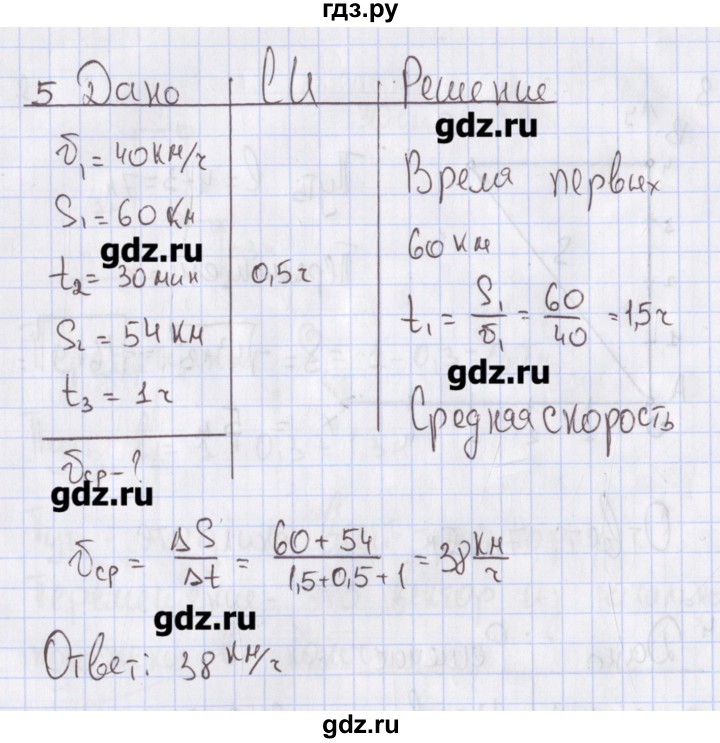 гдз.ру
5 Дано СИ Решение
gdz.ru
υ₁ = 40 км/ч
S₁ = 60 км
gdz.ru
t₂ = 30 мин 0,5 ч
S₂ = 54 км
t₃ = 1 ч
υср - ?
gdz.ru
Время первых
60 км
t₁ = S₁/υ₁ = 60/40 = 1,5 ч
gdz.ru
Средняя скорость
υср = ΔS/Δt = (60 + 54)/(1,5+0,5+1) = 38 км/ч
gdz.ru
Ответ: 38 км/ч
gdz.ru